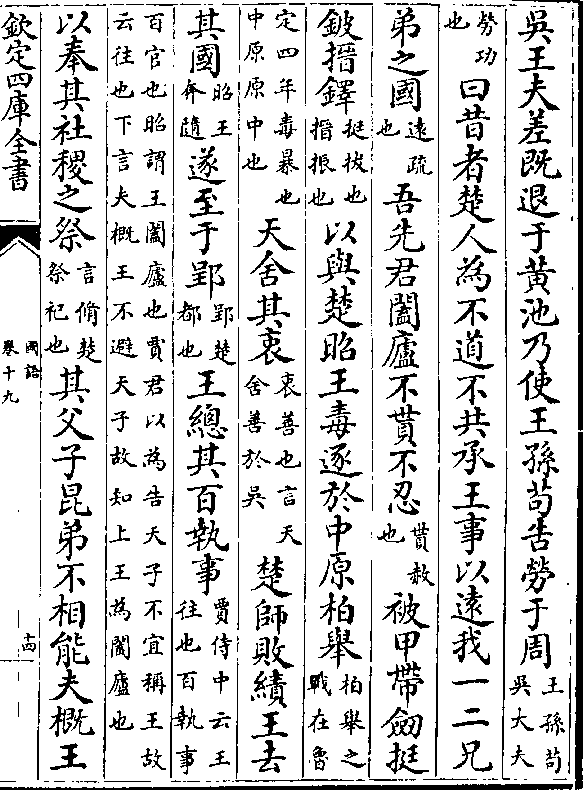 吳王夫差既退于黃池乃使王孫茍告勞于周王孫茍吳大夫
勞功也曰昔者楚人為不道不共承王事以遠我一二兄
弟之國遠疏也吾先君闔廬不貰不忍貰赦也被甲帶劔挺
鈹搢鐸挺拔也搢振也以與楚昭王毒逐於中原柏舉柏舉之戰在魯
定四年毒暴也中原原中也天舍其衷衷善也言天舍善於吳楚師敗績王去
其國昭王奔隨遂至于郢郢楚都也王總其百執事賈侍中云王往也百執事
百官也昭謂王闔廬也賈君以為告天子不宜稱王故
云往也下言夫概王不避天子故知上王為闔廬也
以奉其社稷之祭言脩楚祭祀也其父子昆弟不相能夫概王
欽定四庫全書
國語
卷十九
十四